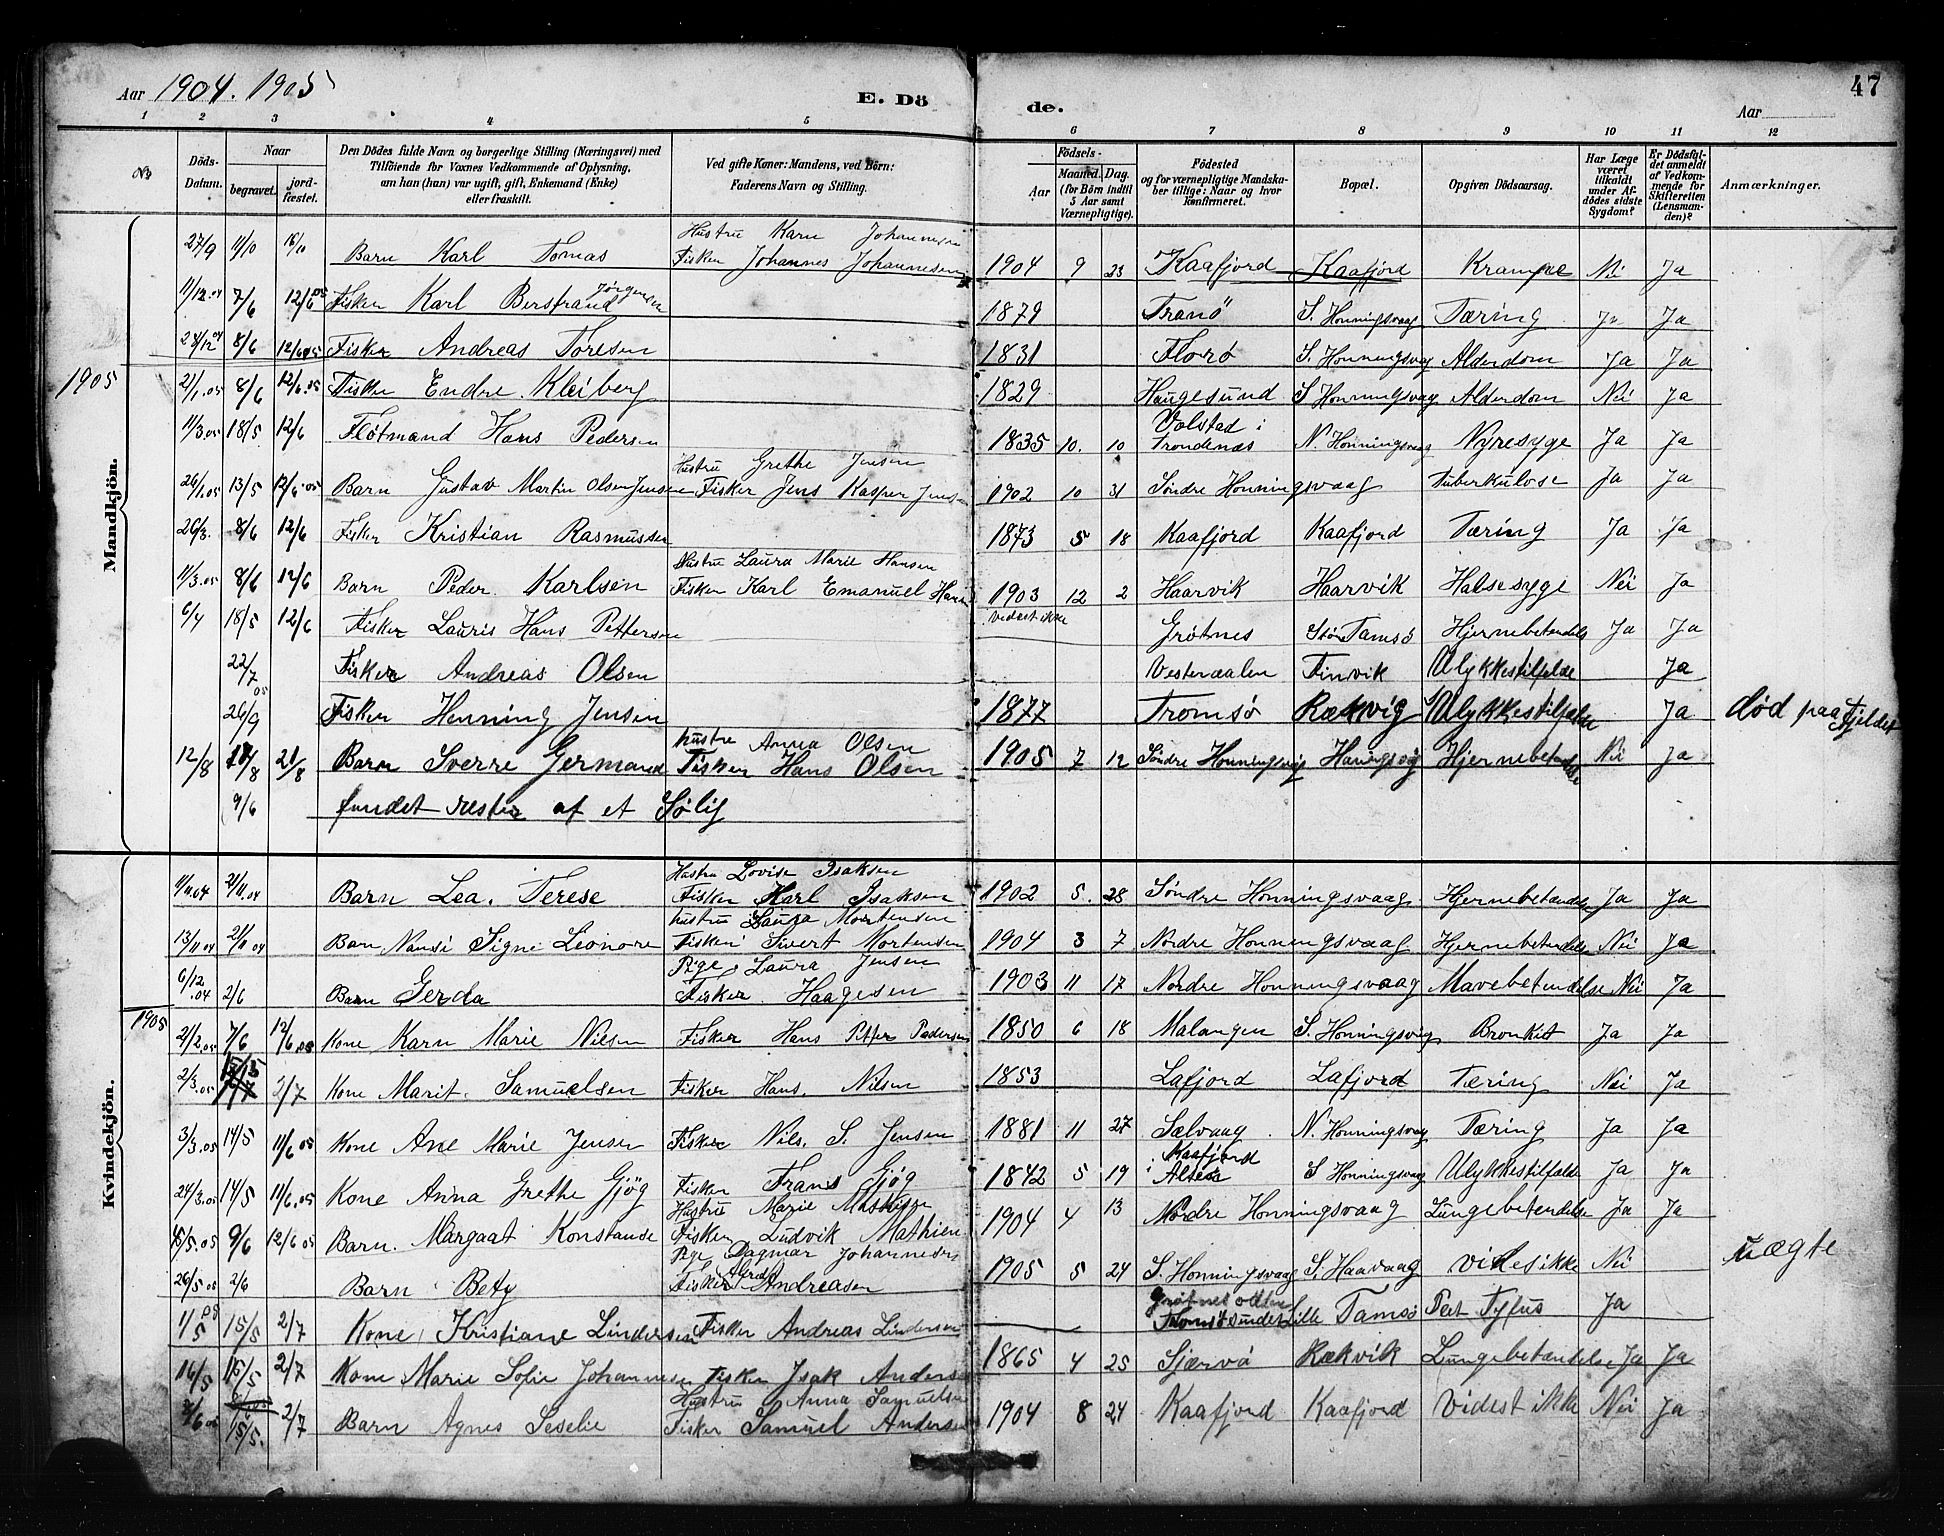 Aar 1904. 1905
E. Döde.
Aar
47
1 2 3 4 5 6 7 8 9 10 11 12
No
Döds-Datum.
Naar
begravet.
jordfæstet.
Den Dödes fulde Navn og borgerlige Stilling (Næringsvei) med Tilföiende for Voxnes Vedkommende af Oplysning, om han (hun) var ugift, gift, Enkemand (Enke) eller fraskilt.
Ved gifte Koner: Mandens, ved Börn: Faderens Navn og Stilling.
Födsels-
Aar
Maaned. Dag. (for Börn indtil 5 Aar samt Værnepligtige).
Födested og for værnepligtige Mandskaber tillige: Naar og hvor konfirmeret.
Bopæl.
Opgiven Dödsaarsag.
Har Læge været tilkaldt under Afdödes sidste Sygdom?
Er Dödsfaldet anmeldt af Vedkommende for Skifteretten (Lensmanden)?
Anmærkninger.
Mandkjön.
27/9 11/10 16/10 Barn Karl Tomas Hustru Karn Johannesen Fisker Johannes Johannesen 1904 9 23 Kaafjord Kaafjord Krampe Nei Ja
11/12.04 7/6 12/6 05 Fisker Karl Berstrand Jørgensen 1879 Tranö S. Honningsvaag Tæring Ja Ja
28/12 04 8/6 12/6 05 Fisker Andreas Toresen 1831 Florø S. Honningsvag Alderdom Ja Ja
1905
21/1.05 8/6 12/6.05 Fisker Endre Kleiberg 1829 Haugesund S Honningsvag Alderdom Nei Ja
11/3.05 18/5 12/6 Fløtmand Hans Pedersen 1835 10. 10 Volstad i Trondenæs N. Honningsvaag Nyresyge Ja Ja
26/1.05 13/5 12/6.05 Barn Gustav Martin Olsen Jensen Hustru Grethe Jensen Fisker Jens Kasper Jensen 1902 10 31 Søndre Honningsvaag Tuberkulose Ja Ja
26/3. 8/6 12/6 Fisker Kristian Rasmussen 1873 5 18 Kaafjord Kaafjord Tæring Ja Ja
11/3.05 8/6 12/6 Barn Peder Karlsen Hustru Laura Marie Hansen Fisker Karl Emanuel Hansen 1903 12 2 Haarvik Haarvik Halsesyge Nei Ja
6/4 18/5 12/6 Fisker Lauris Hans Pettersen vidset ikke Grøtnes Stor Tamsø Hjernebetendelse Ja Ja
22/7 05 Fisker Andreas Olsen Vesteraalen Finvik Ulykkestilfelde Ja
26/9 Fisker Henning Jensen 1877 Tromsø Rækvig Ulykkestilfelde Ja død paa Fjeldet
12/8 17/8 21/8 Barn Sverre Germand Hustru Anna Olsen Fisker Hans Olsen 1905 7 12 Søndre Honningsvåg Honingsvåg Hjernebetendelse Nei Ja
9/6 fundet rester af et Sølig
Kvindekjön.
11/11.04 21/11.04 Barn Lea. Terese Hustru Lovise Isaksen Fisker Karl Isaksen 1902 5. 28 Søndre Honningsvaag Hjernebetændelse Ja Ja
13/11 04 21/11 04 Barn Nansi Signe Leonore Hustru Laura Mortensen Fisker Sivert Mortensen 1904 3 7 Nordre Honningsvaag Hjernebetendelse Nei Ja
6/12.04 2/6 Barn Gerda Pige Laura Jensen Fisker Haagesen 1903 11 17 Nordre Honningsvaag Mavebetendelse Nei Ja
1905
2/2.05 7/6 12/6.05 Kone Karn Marie Nilsen Fisker Hans Petter Pedersen 1850 6 18 Malangen S. Honningsvåg Bronkit Ja Ja
2/3.05 2/7 Kone Marit. Samuelsen Fisker Hans. Nilsen 1853 Lafjord Lafjord Tæring Nei Ja
3/3.05 14/5 11/6 05 Kone Ane Marie Jensen Fisker Nils. S. Jensen 1881 11 27 Sælvaag N. Honningsvaag Tæring Ja Ja
24/3.05 14/5 11/6.05 Kone Anna Grethe Gjøg Fisker Frans Gjøg 1842 5 19 Kaafjord i Alten S Honningsvaag Ulykkestilfelde Ja Ja
8/5.05 9/6 12/6 05 Barn. Margaat Konstanse Hustru Marie Mathisen Fisker Ludvik Mathisen 1904 4 13 Nordre Honningsvaag Lungebetendelse Ja Ja
26/5 05 2/6 Barn Bety Pige Dagmar Johannesen Fisker Alfred Andreasen 1905 5 24 S. Honningsvaag S. Haavaag vides ikke Nei uægte
1/5 15/5 2/7 Kone Kristiane Lindersen Fisker Andreas Lindersen Tromsøsundet Lille Tamsø Pest Tyfus Ja
16/5 15/5 2/7 Kone Marie Sofie Johannesen Fisker Isak Andersen 1865 4 25 Sjærvø Rækvik Lungebetændelse Ja Ja
15/5. 2/7 Barn Agnes Seselie Hustru Anna Samuelsen Fisker Samuel Andersen 1904 8 24 Kaafjord Kaafjord Videst ikke Nei Ja